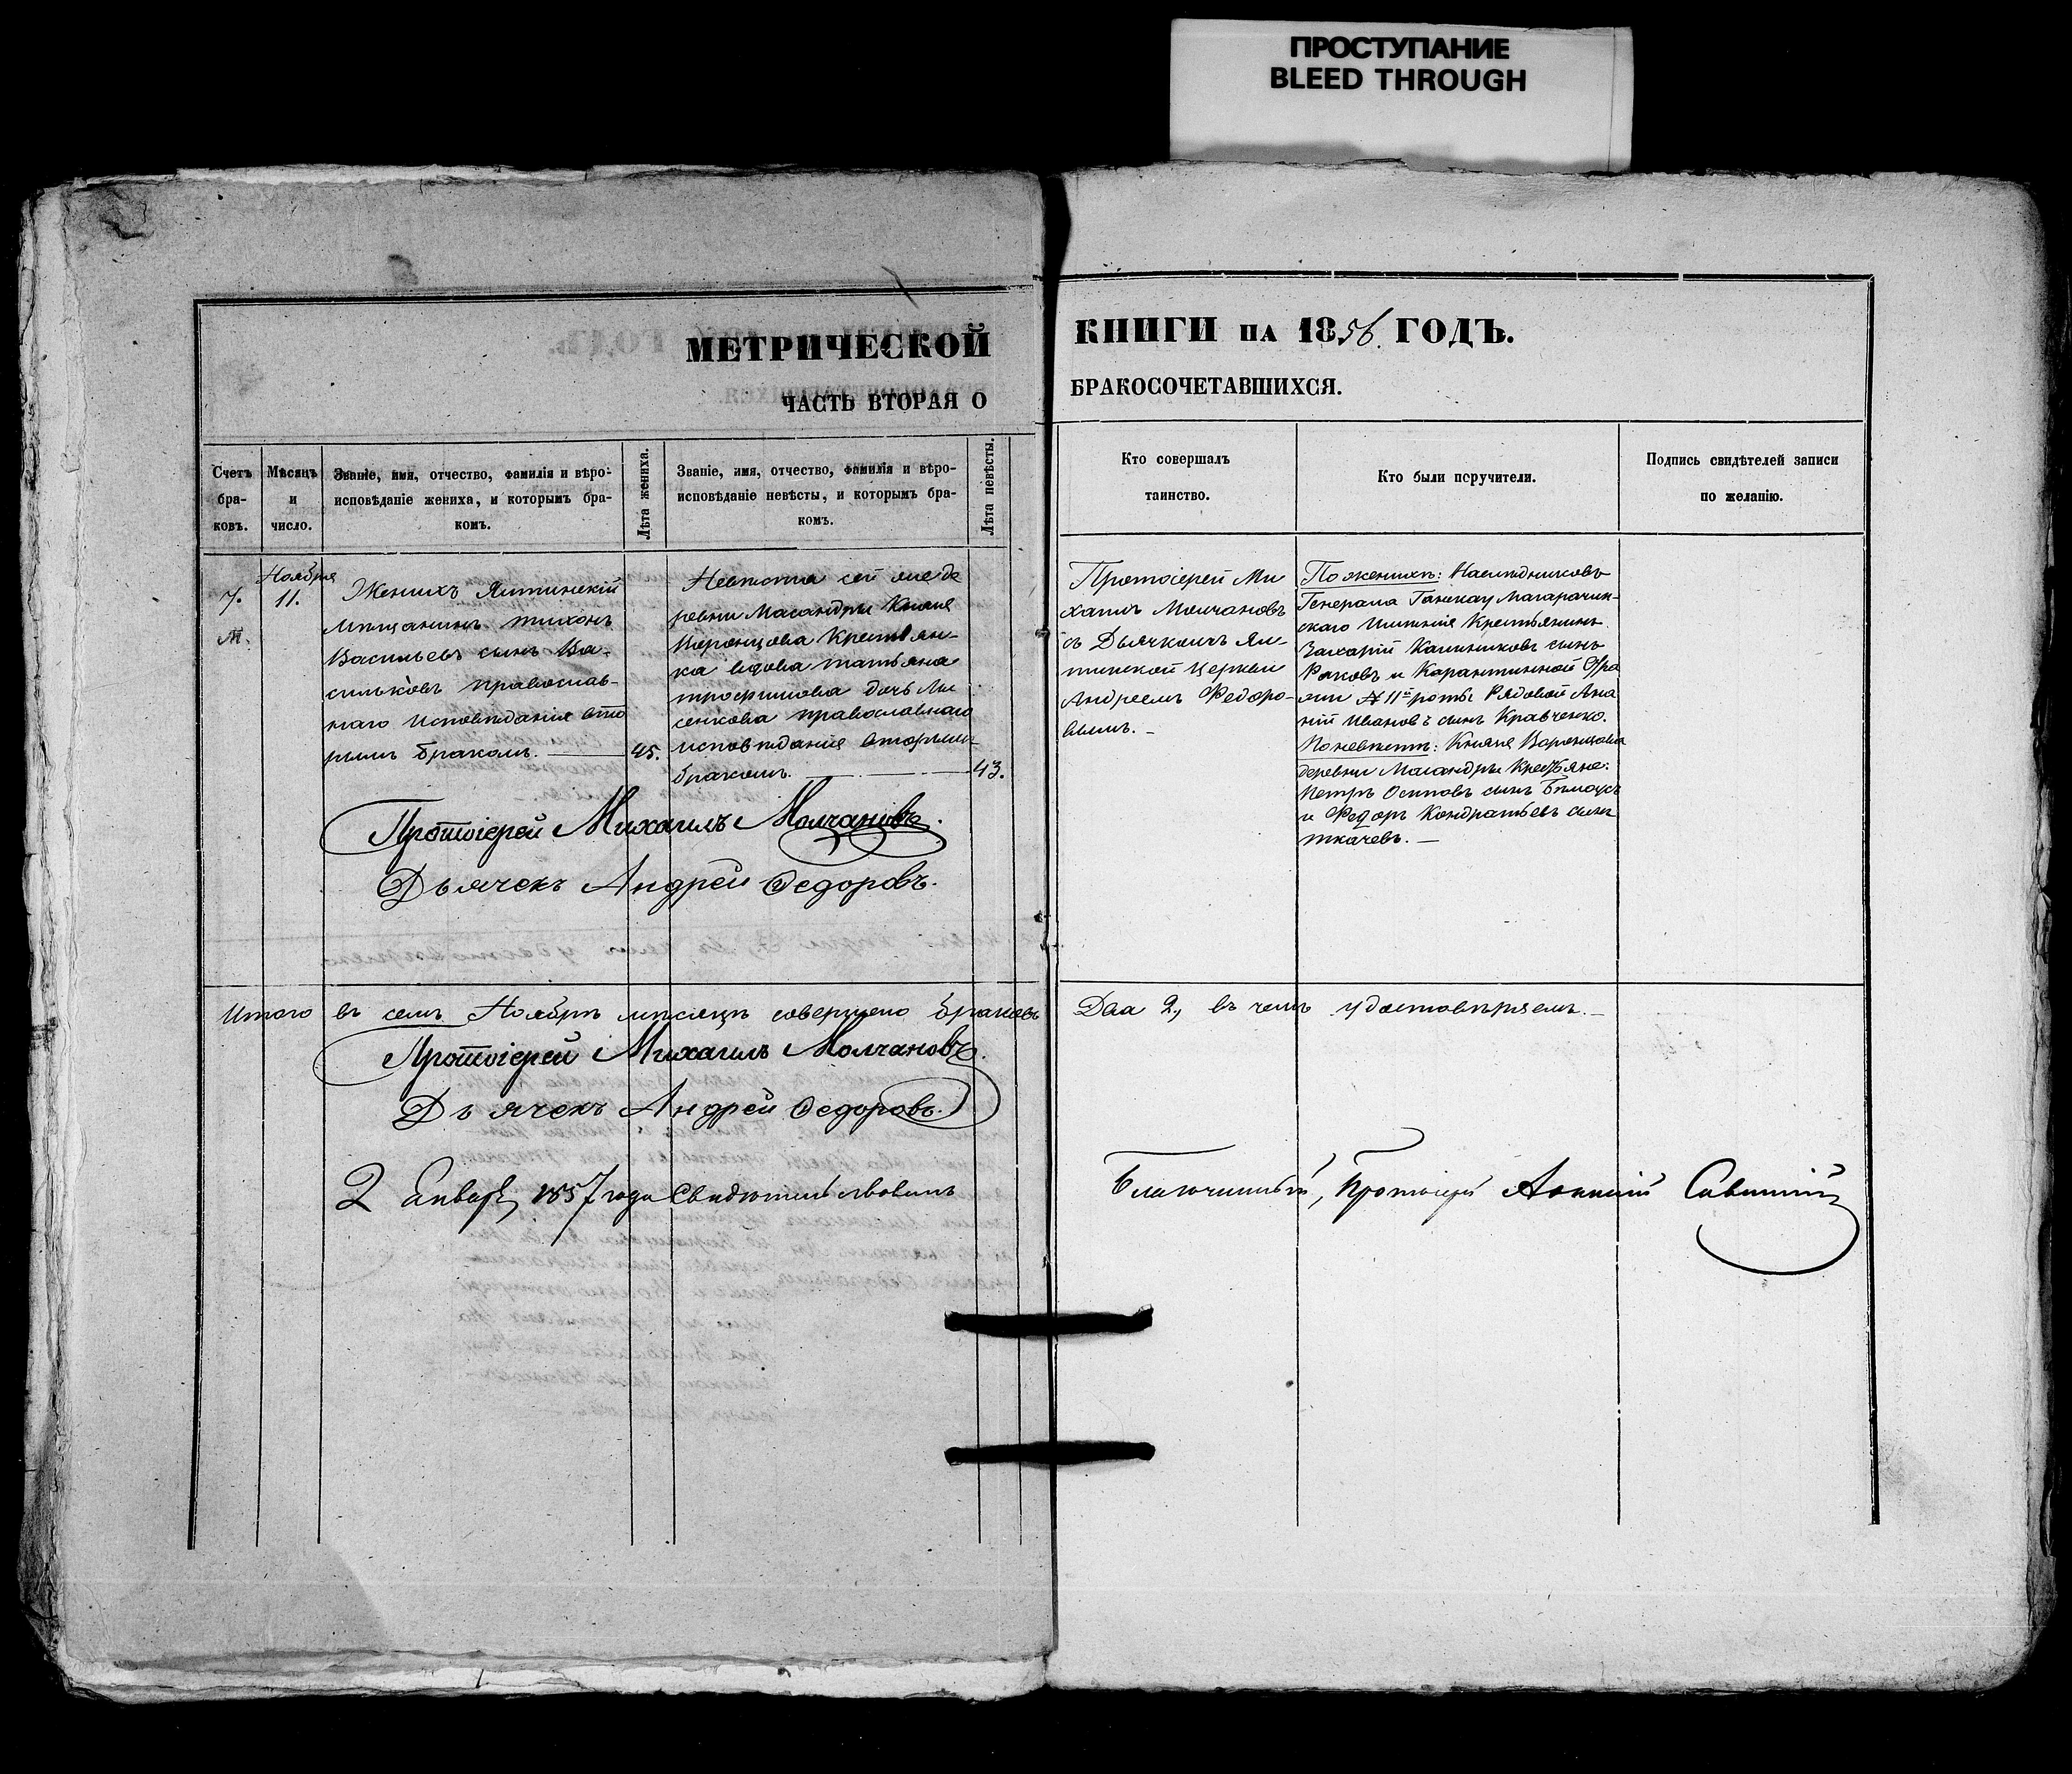 ПРОСТУПАНИЕ
BLEED THROUGH
МЕТРИЧЕСКОЙ
ЧАСТЬ ВТОРАЯ О
КНИГИ НА 1856 ГОДЪ.
БРАКОСОЧЕТАВШИХСЯ.
Счетъ
бра-
ковъ.
Мѣсяцъ
и
число.
Званіе, имя, отчество, фамилія и вѣро-
исповѣданіе жениха, и которымъ бра-
комъ.
Лѣта жениха.
Званіе, имя, отчество, фамилія и вѣро-
исповѣданіе невѣсты, и которымъ бра-
комъ.
Лѣта невѣсты.
Кто совершалъ
таинство.
Кто были поручители.
Подпись свидѣтелей записи
по желанію.
7.
Ноября
11.
Женихъ Ялтинскій
мѣщанинъ Тихонъ
Васильевъ сынъ Ва-
сильковъ православ-
наго исповѣданія вто
рымъ бракомъ.
45.
Невѣста сей же де
ревни Масандры Князя
Воронцова Крестьян-
ка вдова Татьяна
Трофимова дочь Лы
сенкова православнаго
исповѣданія вторымъ
бракомъ.
43.
Протоіерей Михаилъ Молчановъ.
Дьячекъ Андрей Ѳедоровъ.
Протоіерей Ми
хаилъ Молчановъ
съ Дьячкомъ Ял-
тинской Церкви
Андреемъ Федоро-
вымъ.
По женихѣ: Наслѣдниковъ
Генерала Магарачин-
скаго Имѣнія Крестьянинъ
Захарій Калинниковъ сынъ
Раковъ и Карантинной Стра
жи № 11й роты Рядовой Ана
ній Ивановъ сынъ Кравченко.
По невѣстѣ: Князя Воронцова
деревни Масандры Крестьяне:
Петръ Осиповъ сынъ
и Федоръ Кондратьевъ сынъ
Ткачевъ.
Итого въ семъ Ноябрѣ мѣсяцѣ совершено браковъ
Два 2, въ чемъ удостовѣряемъ.
Протоіерей Михаилъ Молчановъ.
Дьячекъ Андрей Ѳедоровъ.
2 Января 1857 года Свидѣтельствовалъ
Благочинный, Протоіерей